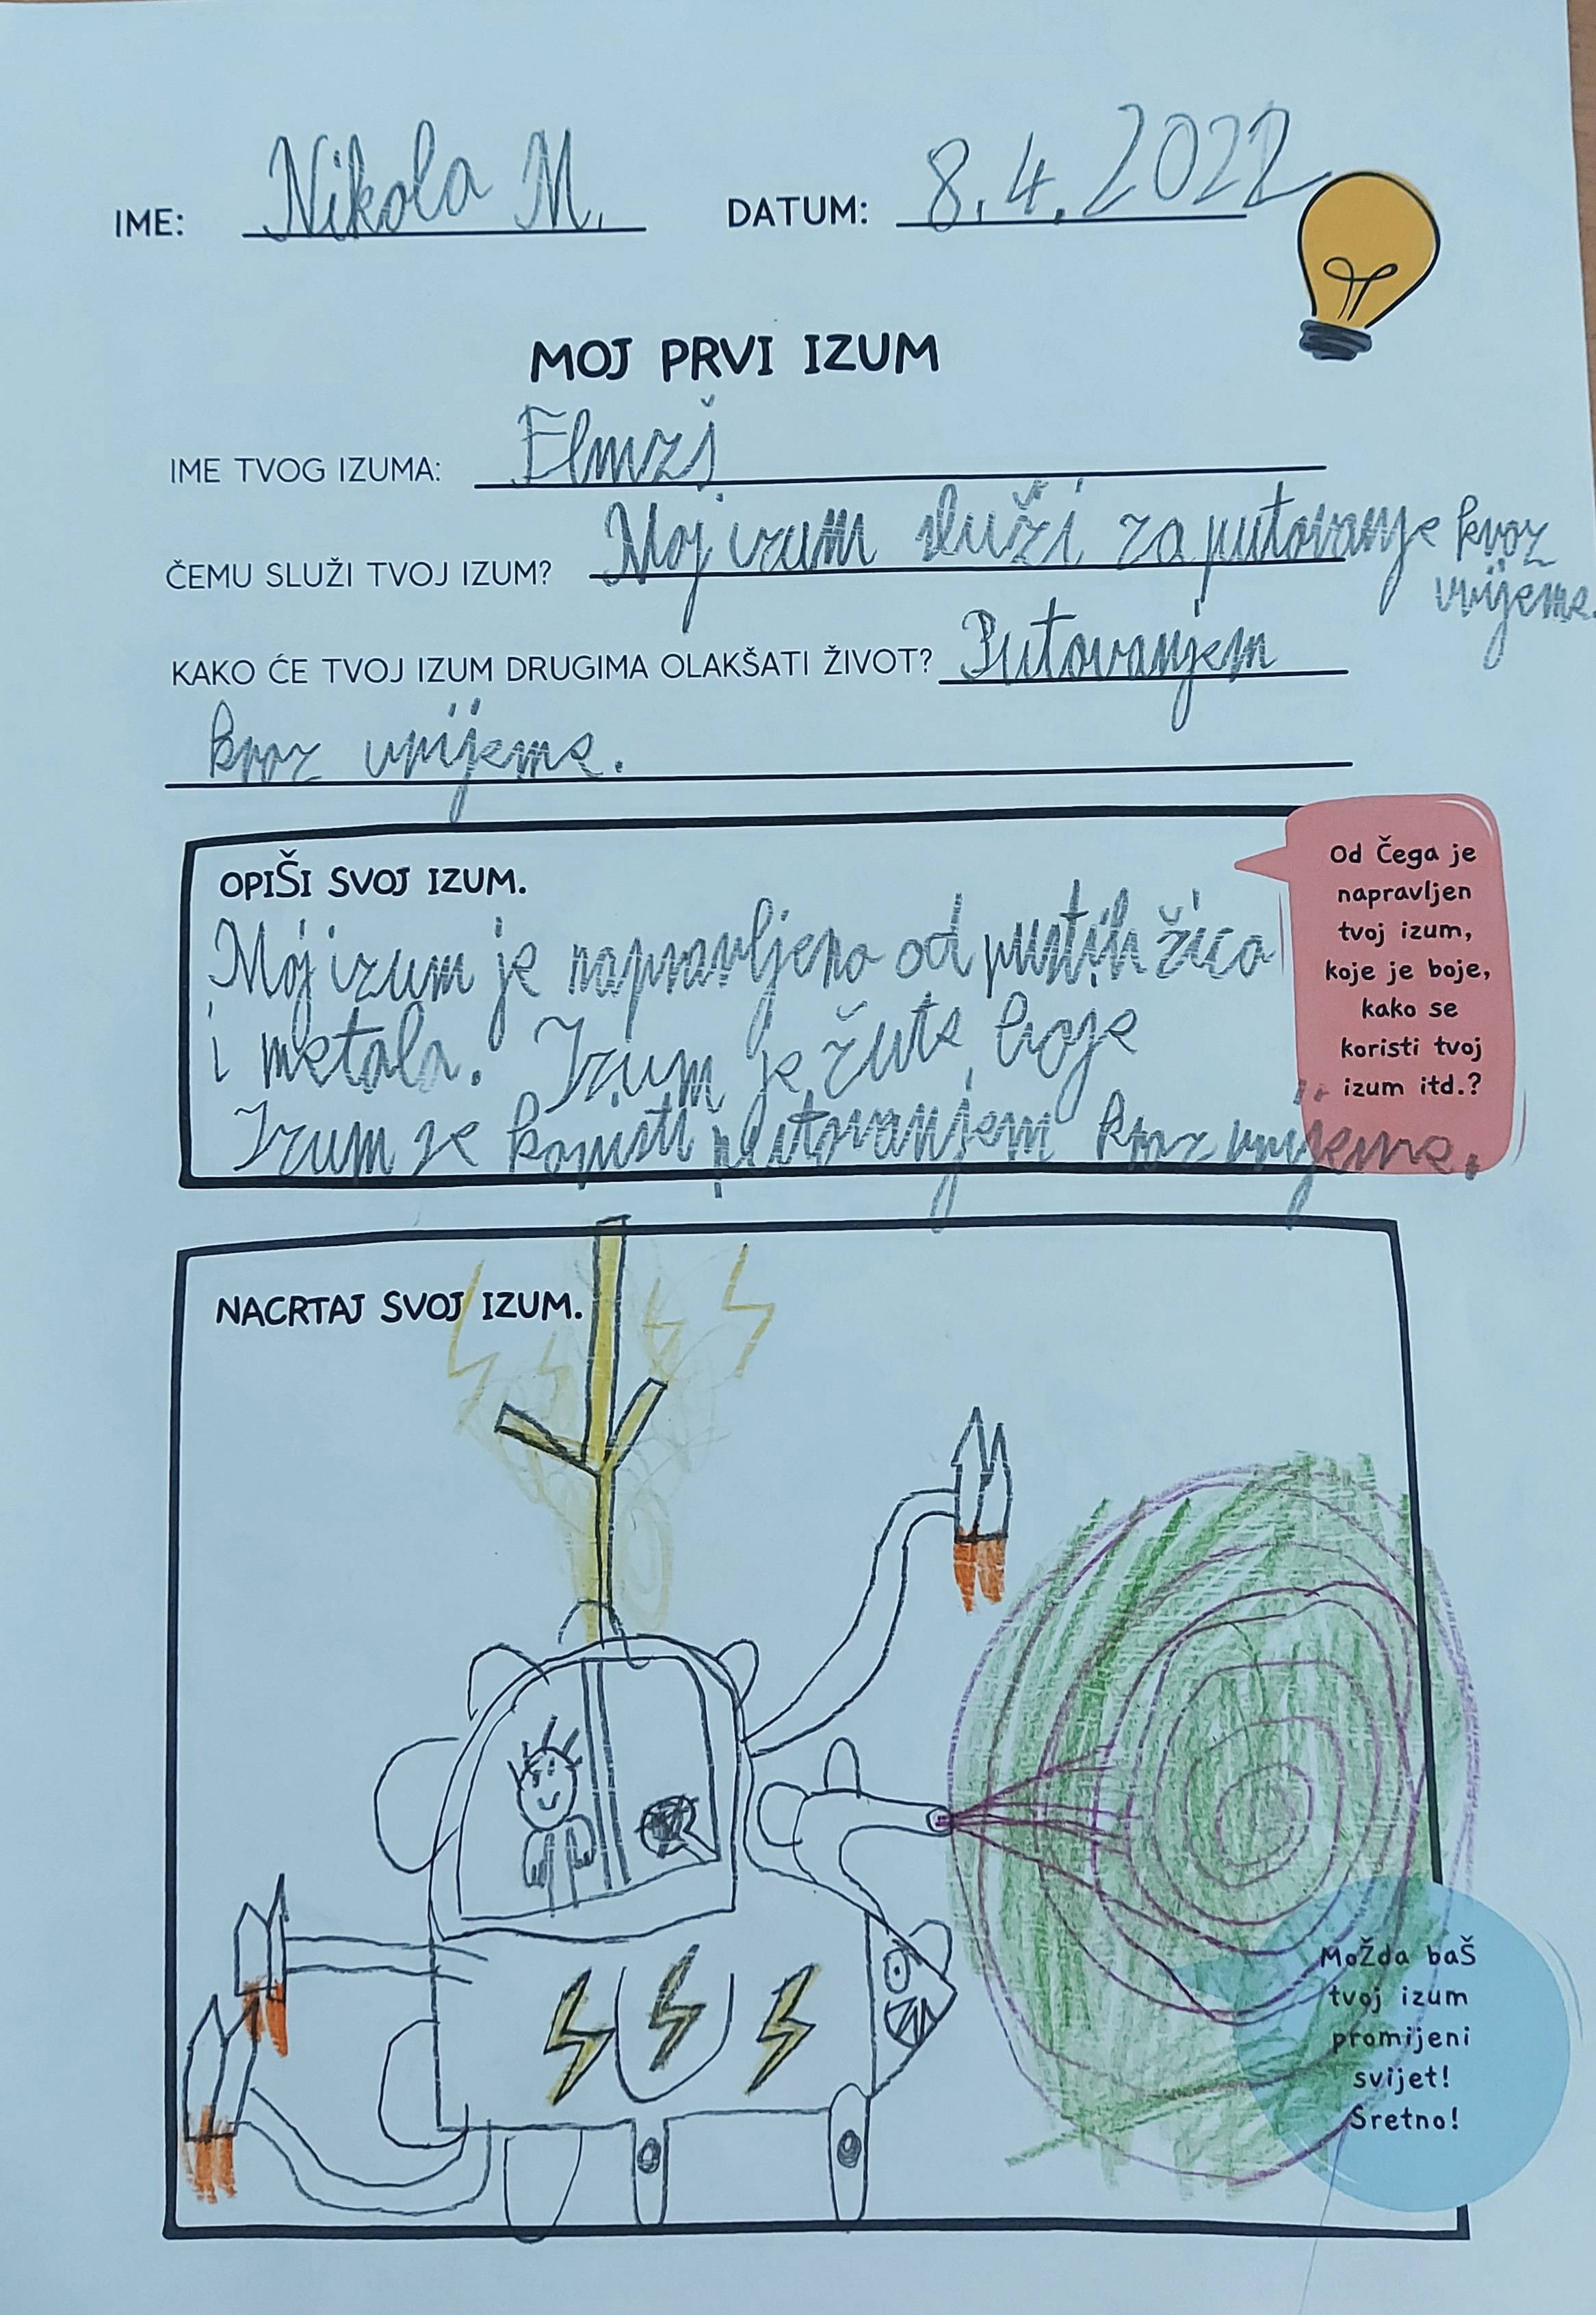 IME: Nikola M. DATUM: 8.4.2022
MOJ PRVI IZUM
IME TVOG IZUMA:
ČEMU SLUŽI TVOJ IZUM? Moj izum služi za putovanje kroz
vrijeme.
KAKO ĆE TVOJ IZUM DRUGIMA OLAKŠATI ŽIVOT? Putovanjem
kroz vrijeme.
OPIŠI SVOJ IZUM.
Moj izum je napravljeno od žica
i metala. Izum je žute boje
Izum se koristi putovanjem kroz vrijeme.
Od Čega je
napravljen
tvoj izum,
koje je boje,
kako se
koristi tvoj
izum itd.?
NACRTAJ SVOJ IZUM.
MoŽda baŠ
tvoj izum
promijeni
svijet!
Sretno!